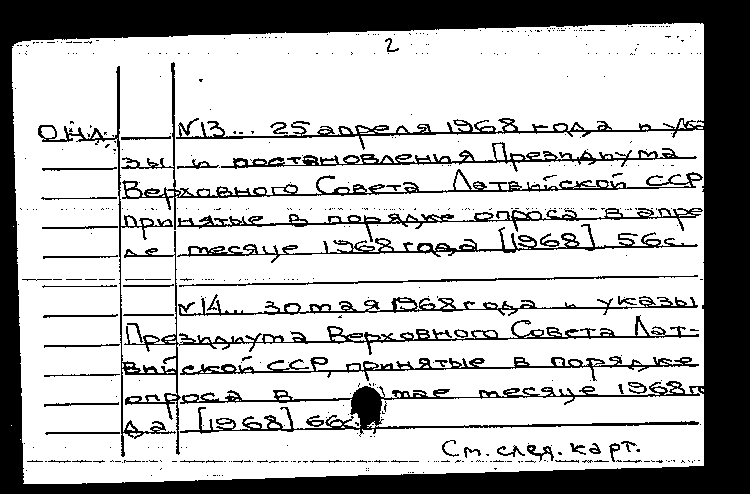 2
ОНЛ. №13... 25 апреля 1968 года и ука
зы и постановления Президиума
Верховного Совета Латвийской ССР,
принятые в порядке опроса в апре
ле месяце 1968 года [1968] 56с.
№14... 30 мая 1968 года и указы
Президиума Верховного Совета Лат-
вийской ССР, принятые в порядке
опроса в мае месяце 1968 го
да [1968] 66с.
См. след. карт.